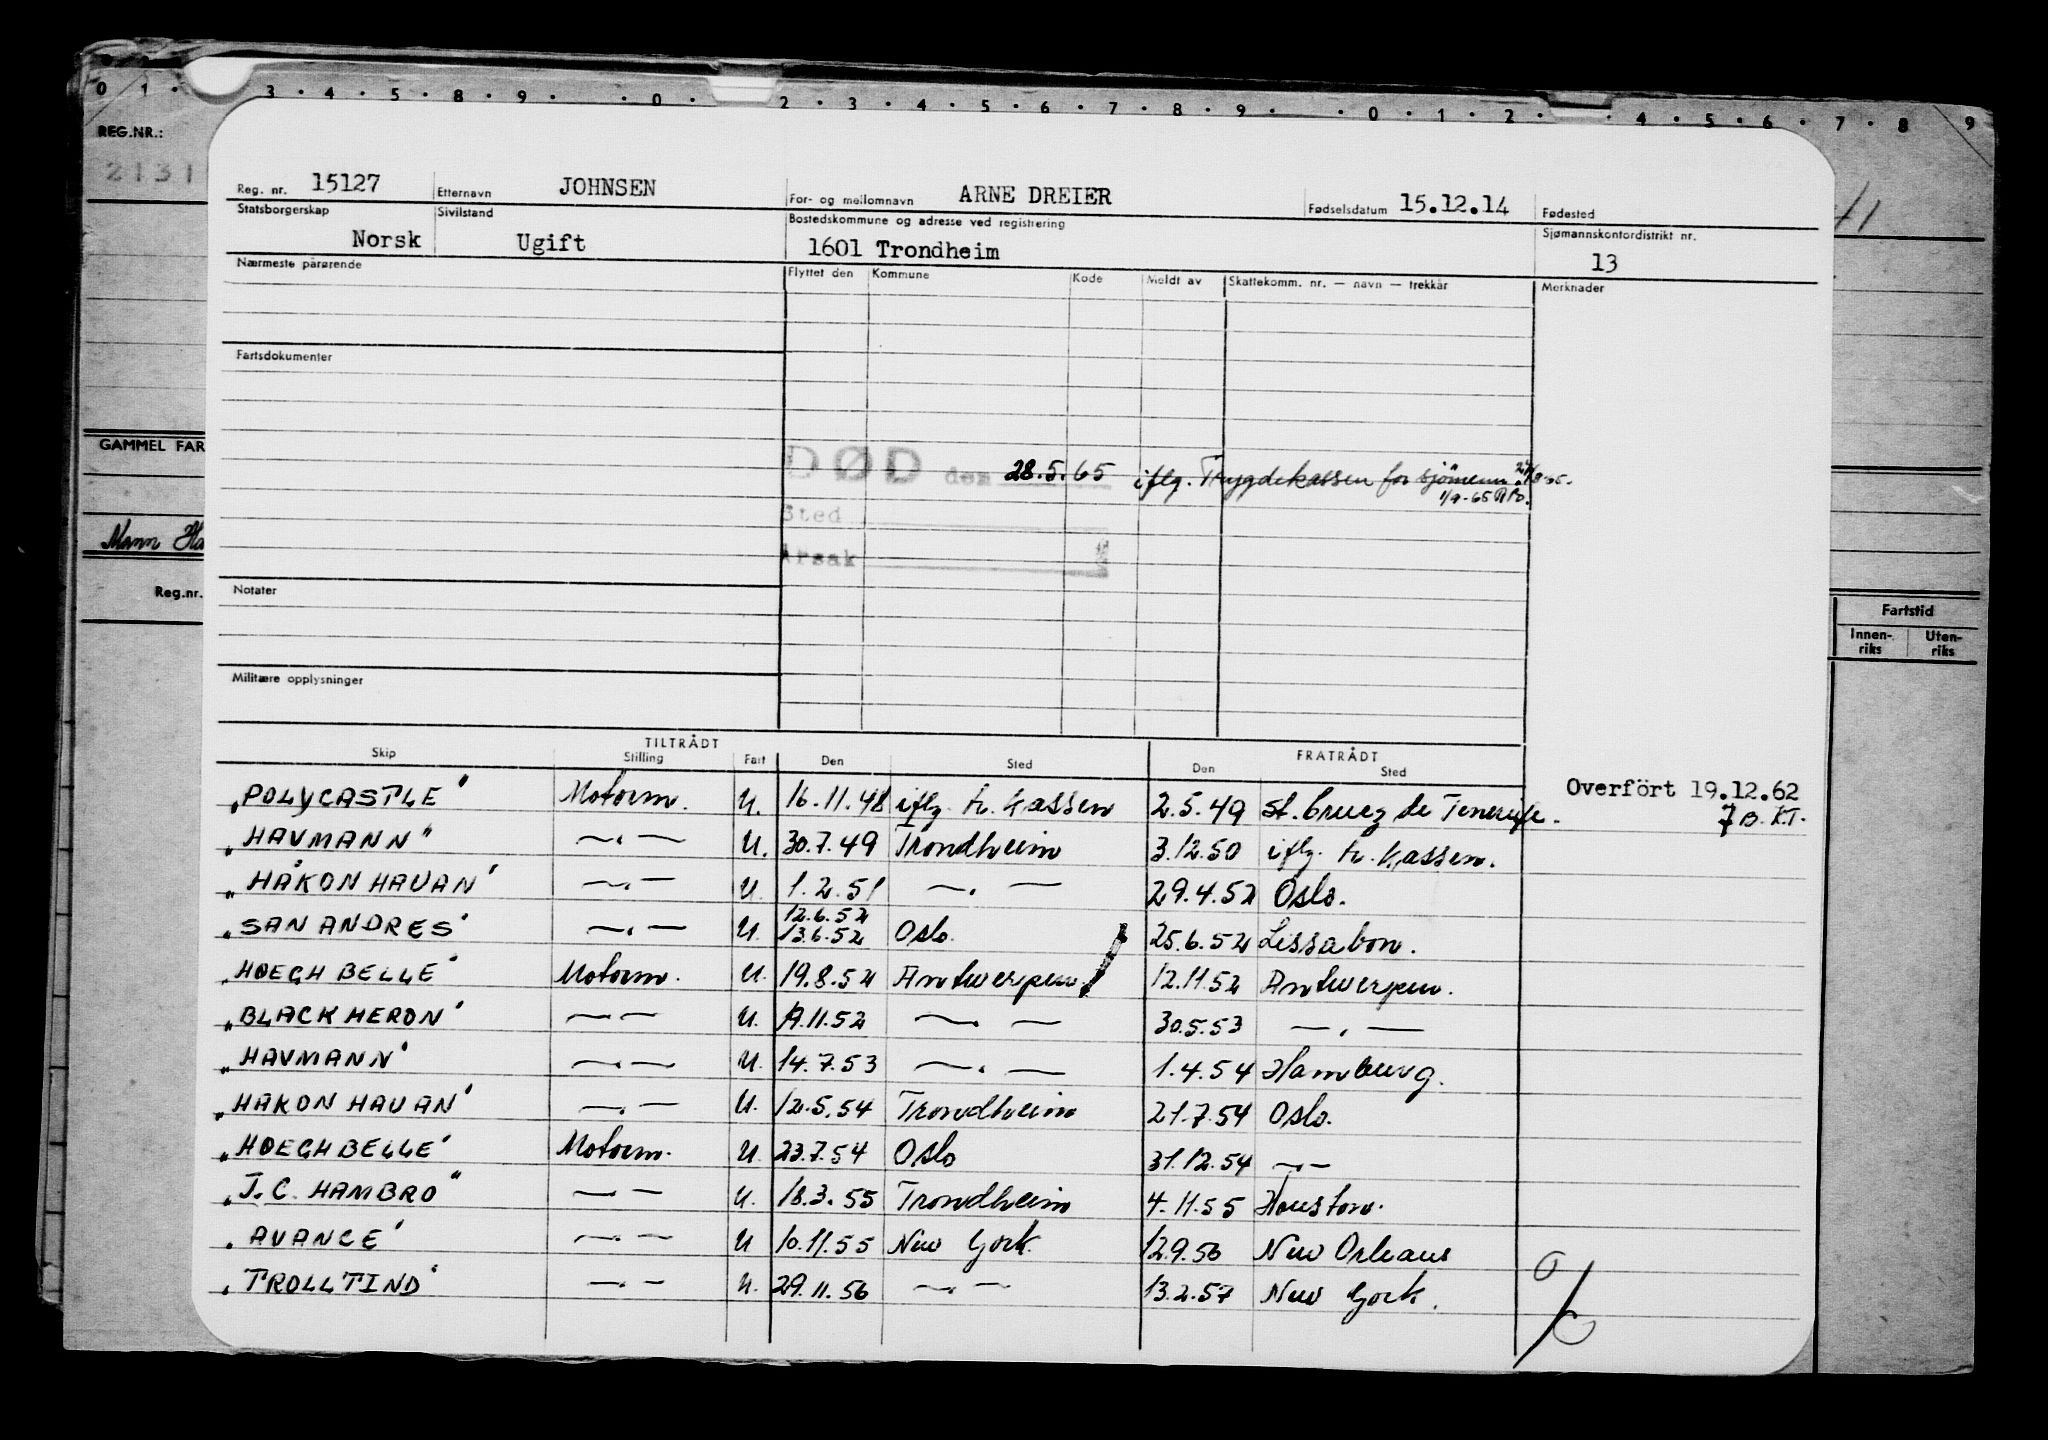 0 1 · 3 · 4 · 5 · 8 · 9 · · 0 · 2 · 3 · 4 · 5 · 6 · 7 · 8 · 9 · · 0 · 1 · 2 · · 4 · 5 · 6 · 7 · 8 9
REG.NR.:
2131
Reg. nr. 15127 Etternavn JOHNSEN For- og mellomnavn ARNE DREIER Fødselsdatum 15.12.14 Fødested
Statsborgerskap Sivilstand Bostedskommune og adresse ved registrering Sjømannskontordistrikt nr.
Norsk Ugift 1601 Trondheim 13
Nærmeste pårørende Flyttet den Kommune Kode Meldt av Skattekomm. nr. — navn — trekkår Merknader
Fartsdokumenter
GAMMEL FAR
DØD den 28.5.65 iflg. Trygdekassen for sjömenn
1/9-65
Sted
Årsak
Mann
Reg.nr.
Notater
Fartstid
Innen-riks Uten-riks
Militære opplysninger
TILTRÅDT FRATRÅDT
Skip Stilling Fart Den Sted Den Sted
Overfört 19.12.62
"POLYCASTLE" Motorm. U. 16.11.48 iflg. tr. kassen 2.5.49 St. Cruez de Tenerife.
"HAVMANN" —.— U. 30.7.49 Trondheim 3.12.50 iflg. tr. kassen.
"HÅKON HAVAN" —.— U. 1.2.51 —.— 29.4.52 Oslo.
"SAN ANDRES" —.— U. 12.6.52 13.6.52 Oslo. 25.6.52 Lissabon.
"HOEGH BELLE" Motorm. U. 19.8.52 Antwerpen. 12.11.52 Antwerpen.
"BLACK HERON" —.— U. 19.11.52 —.— 30.5.53 —.—
"HAVMANN" —.— U. 14.7.53 —.— 1.4.54 Hamburg.
"HÅKON HAVAN" —.— U. 12.5.54 Trondheim 21.7.54 Oslo.
"HOEGH BELLE" Motorm. U. 23.7.54 Oslo 31.12.54 —.—
"J.C. HAMBRO" —.— U. 18.3.55 Trondheim 4.11.55 Houston.
"AVANCE" —.— U 10.11.55 New York. 12.9.56 New Orleans
"TROLLTIND" —.— U. 29.11.56 —.— 13.2.57 New York.